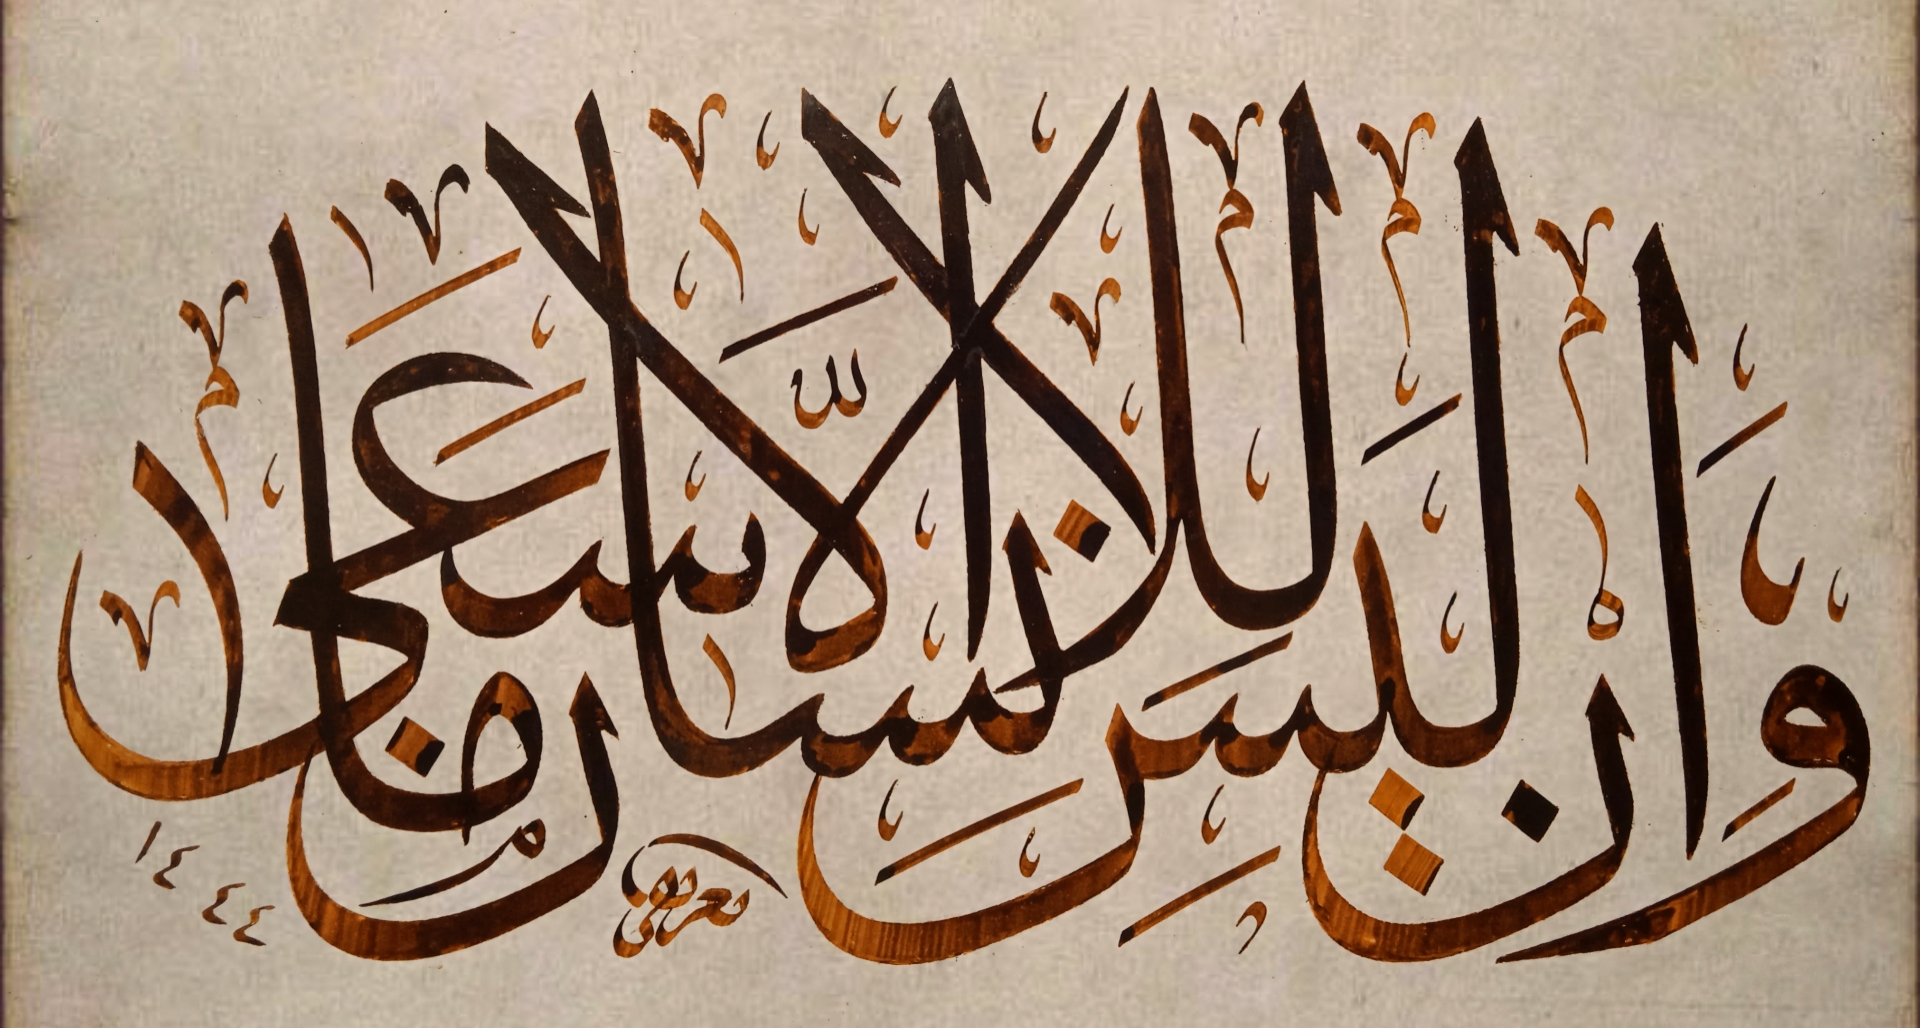 وَأَنْ لَيْسَ لِلْإِنْسَانِ إِلَّا مَا سَعَى
١٤٤٤